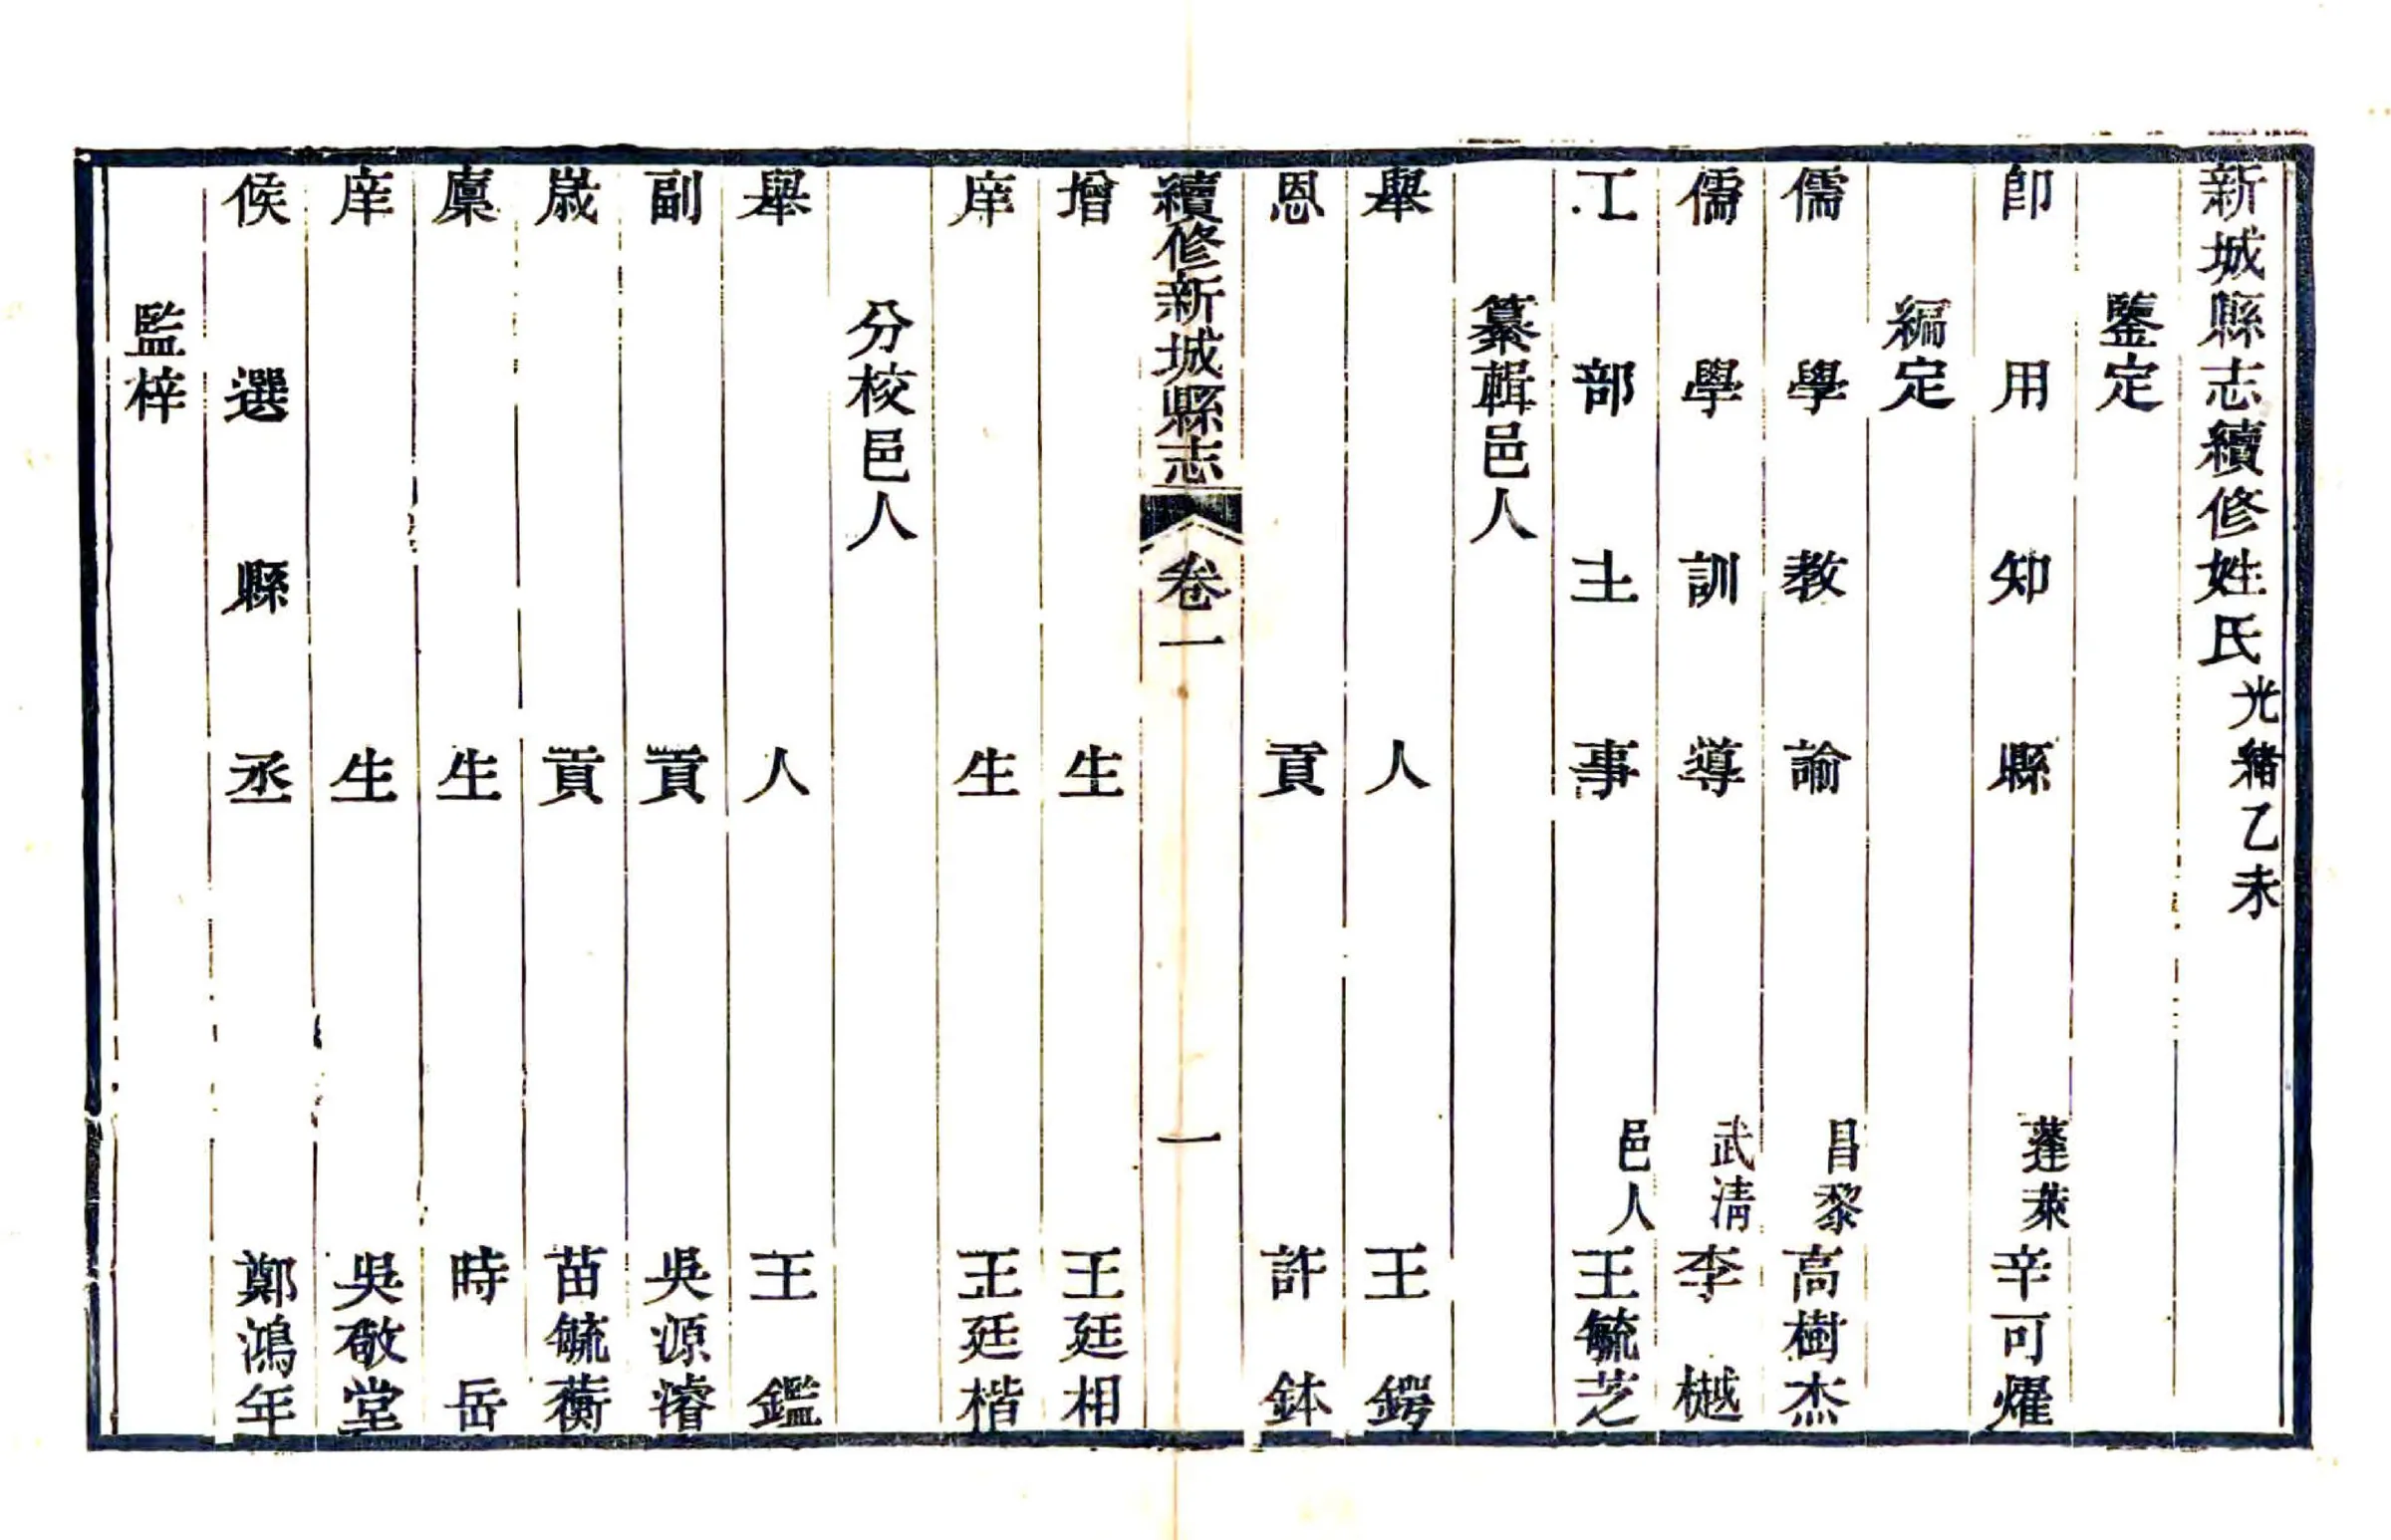 新城縣志續修姓氏光緒乙未
鑒定
卽用知縣蓬萊辛可燿
編定
儒學教諭昌黎高樹杰
儒學訓導武清李樾
工部主事邑人王毓芝
纂輯邑人
舉人王鍔
恩貢許鉢
續修新城縣志卷一一
增生王廷相
庠生王廷楷
分校邑人
舉人王鑑
副貢吳源濬
歲貢苗毓蘅
廩生時岳
庠生吳敬堂
候選縣丞鄭鴻年
監梓